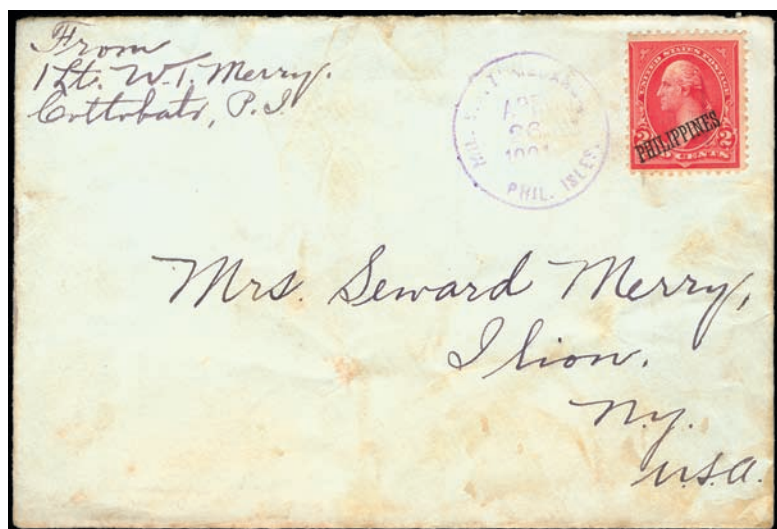 From
1 Lt. W. T. Merry.
Cottobato, P. I.
MIL. STA.
APR
26
1901
PHIL. ISLES.
UNITED STATES POSTAGE
PHILIPPINES
2 TWO CENTS 2
Mrs. Seward Merry,
Ilion.
N.y.
U.S.A.